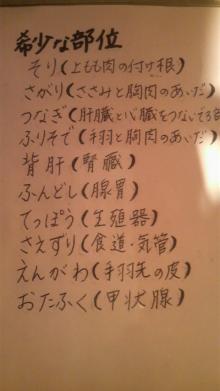 希少な部位
そり(上もも肉の付け根)
さがり(ささみと胸肉のあいだ)
つなぎ(肝臓と心臓をつないでる
ふりそで(手羽と胸肉のあいだ)
背肝(腎臓)
ふんどし(腺胃)
てっぽう(生殖器)
さえずり(食道・気管)
えんがわ(手羽先の皮)
おたふく(甲状腺)